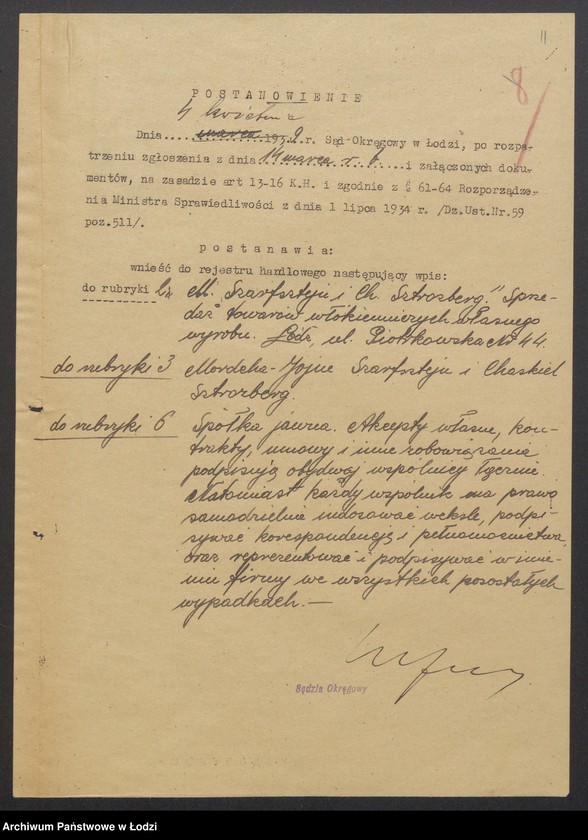 11
8
POSTANOWIENIE
4 kwietnia
Dnia....marca....1939.r. Sąd Okręgowy w Łodzi, po rozpa-
trzeniu zgłoszenia z dnia 14 marca r. b. i załączonych doku-
mentów, na zasadzie art 13-16 K.H. i zgodnie z § 61-64 Rozporządze-
nia Ministra Sprawiedliwości z dnia 1 lipca 1934 r. /Dz.Ust.Nr.59
poz.511/.
postanawia:
wnieść do rejestru handlowego następujący wpis:
do rubryki 2. „M. Szarfsztejn i Ch. Sztrozberg." Sprze-
daż towarów włókienniczych własnego
wyrobu. Łódź, ul. Piotrkowska № 44.
do rubryki 3 Mordcha-Jojne Szarfsztejn i Chaskiel
Sztrozberg.
do rubryki 6 Spółka jawna. Akcepty własne, kon-
trakty, umowy i inne zobowiązania
podpisują obydwaj wspólnicy łącznie.
Natomiast każdy wspólnik ma prawo
samodzielnie indosować weksle, podpi-
sywać korespondencję i pełnomocnictwa,
oraz reprezentować i podpisywać w imie-
niu firmy we wszystkich pozostałych
wypadkach.—
Sędzia Okręgowy
Archiwum Państwowe w Łodzi